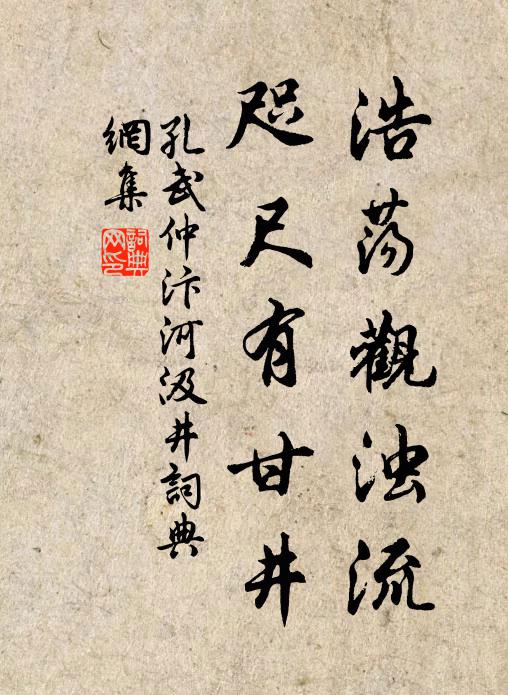 浩荡觀浊流
咫尺有甘井
孔武仲汴河汲井詞典
網集
詞典
网印